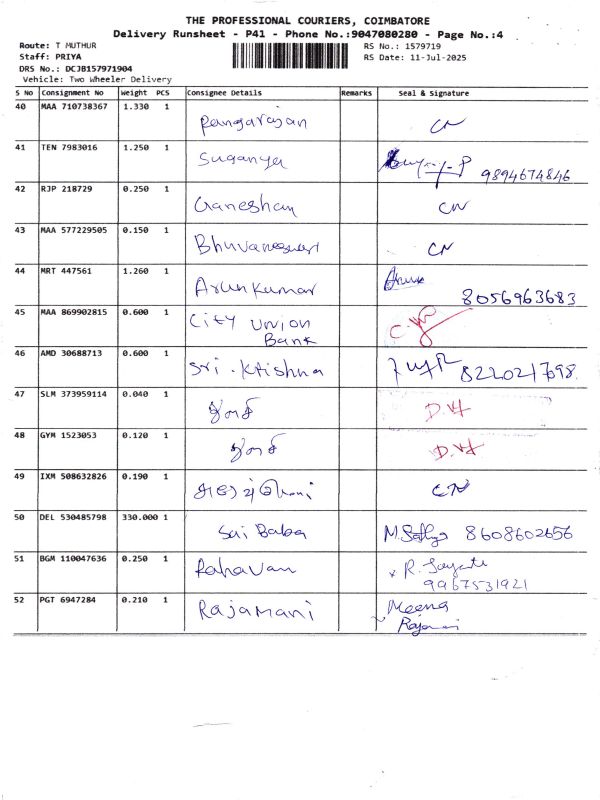 THE PROFESSIONAL COURIERS, COIMBATORE
Delivery Runsheet - P41 - Phone No.:9047080280 - Page No.:4
Route: T MUTHUR RS No.: 1579719
Staff: PRIYA RS Date: 11-Jul-2025
DRS No.: DCJB157971904
Vehicle: Two Wheeler Delivery
S No Consignment No Weight PCS Consignee Details Remarks Seal & Signature
40 MAA 710738367 1.330 1 Rangarajan CN
41 TEN 7983016 1.250 1 Suganya 9894674846
42 RJP 218729 0.250 1 Ganeshan CN
43 MAA 577229505 0.150 1 Bhuvaneswari CN
44 MRT 447561 1.260 1 Arun Kumar 8056963683
45 MAA 869902815 0.600 1 City Union
Bank
46 AMD 30688713 0.600 1 Sri. Krishna
47 SLM 373959114 0.040 1
48 GYM 1523053 0.120 1
49 IXM 508632826 0.190 1 CN
50 DEL 530485798 330.000 1 Sai Baba 8608602656
51 BGM 110047636 0.250 1 Rahavan
9967531921
52 PGT 6947284 0.210 1 Rajamani Meena